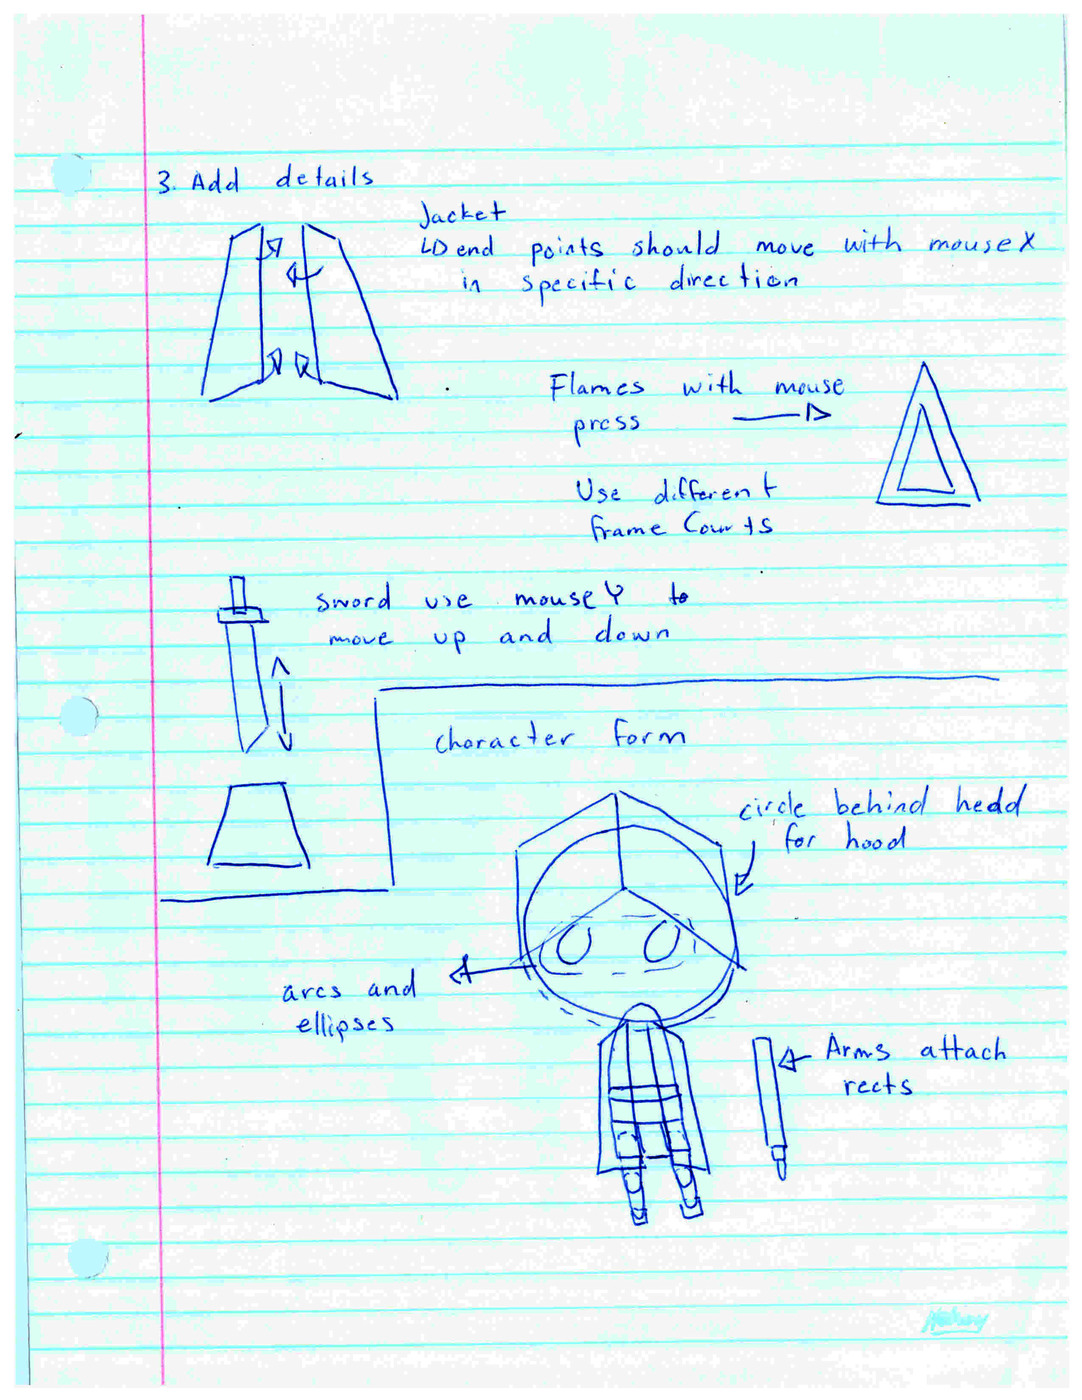 3. Add details
Jacket
↳ end points should move with mouseX
in specific direction
Flames with mouse
press
Use different
frame Counts
sword use mouseY to
move up and down
character form
circle behind hedd
for hood
arcs and
ellipses
Arms attach
rects